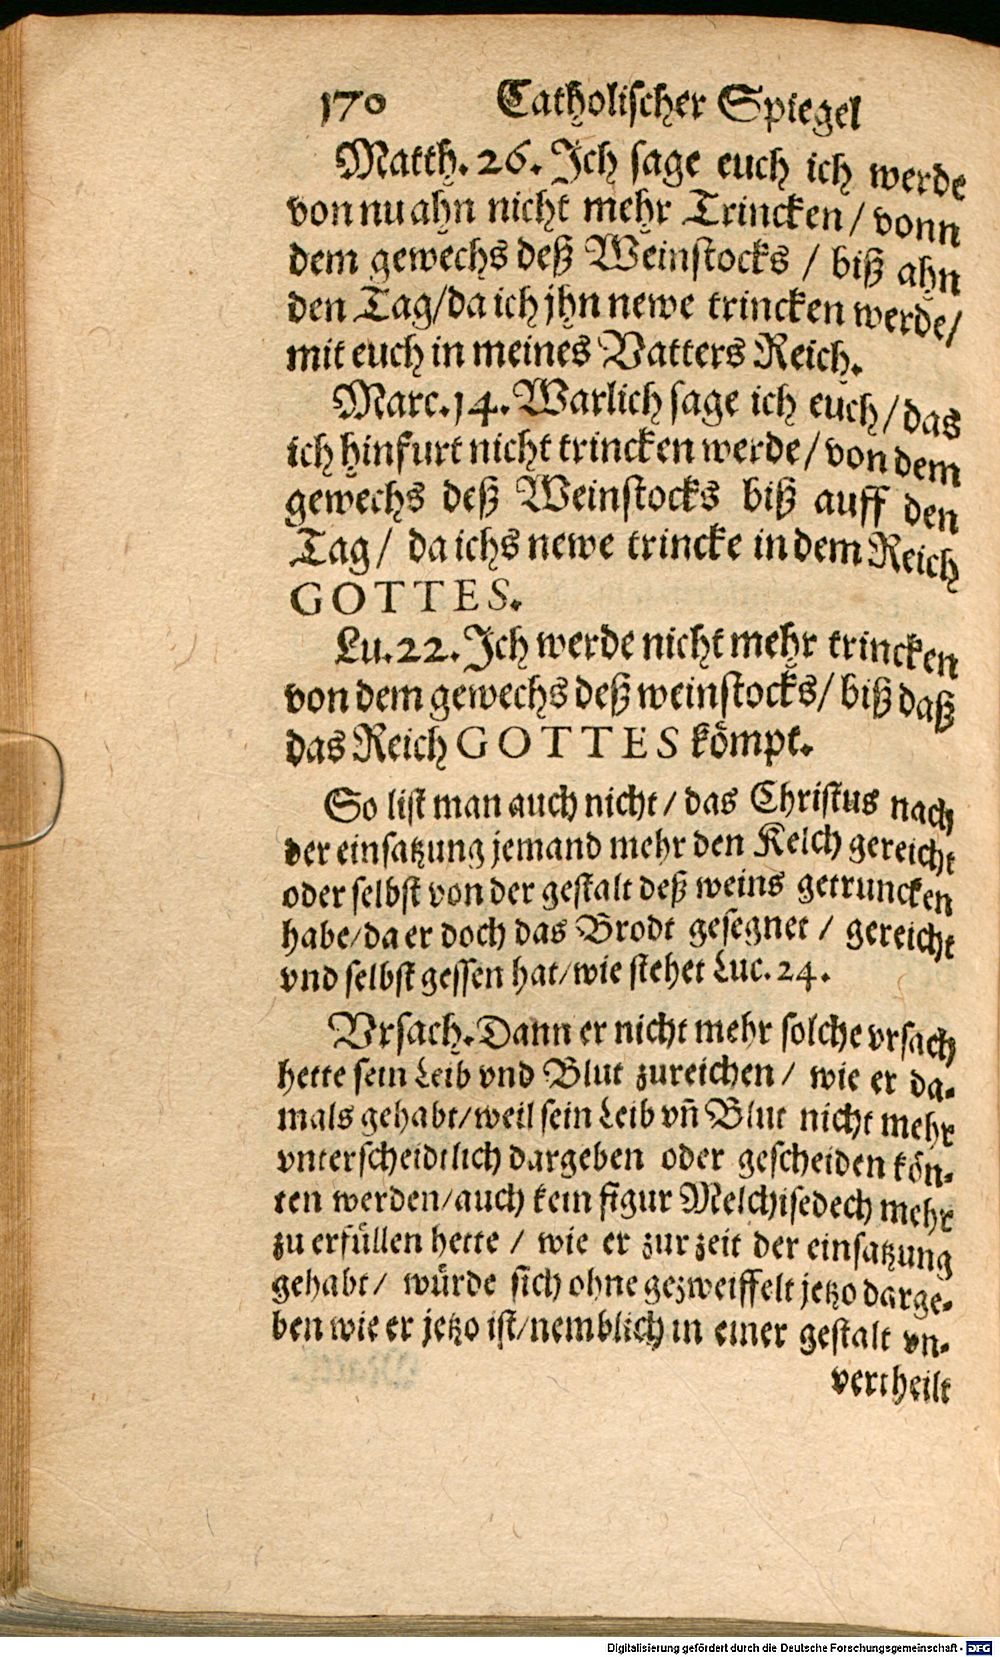 170 Catholischer Spiegel
Matth. 26. Ich sage euch ich werde
von nu ahn nicht mehr Trincken / vonn
dem gewechs deß Weinstocks / biß ahn
den Tag/da ich jhn newe trincken werde/
mit euch in meines Vatters Reich.
Marc. 14. Warlich sage ich euch/das
ich hinfurt nicht trincken werde/von dem
gewechs deß Weinstocks biß auff den
Tag/ da ichs newe trincke in dem Reich
GOTTES.
Lu. 22. Ich werde nicht mehr trincken
von dem gewechs deß weinstocks/ biß daß
das Reich GOTTES kömpt.
So list man auch nicht / das Christus nach
der einsatzung jemand mehr den Kelch gereicht
oder selbst von der gestalt deß weins getruncken
habe/da er doch das Brodt gesegnet / gereicht
vnd selbst gessen hat/wie stehet Luc. 24.
Vrsach. Dann er nicht mehr solche vrsach
hette sein Leib vnd Blut zureichen / wie er da-
mals gehabt/weil sein Leib vñ Blut nicht mehr
vnterscheidtlich dargeben oder gescheiden kön-
ten werden/auch kein figur Melchisedech mehr
zu erfüllen hette / wie er zur zeit der einsatzung
gehabt/ würde sich ohne gezweiffelt jetzo darge-
ben wie er jetzo ist/nemblich in einer gestalt vn-
vertheilt
Digitalisierung gefördert durch die Deutsche Forschungsgemeinschaft - DFG